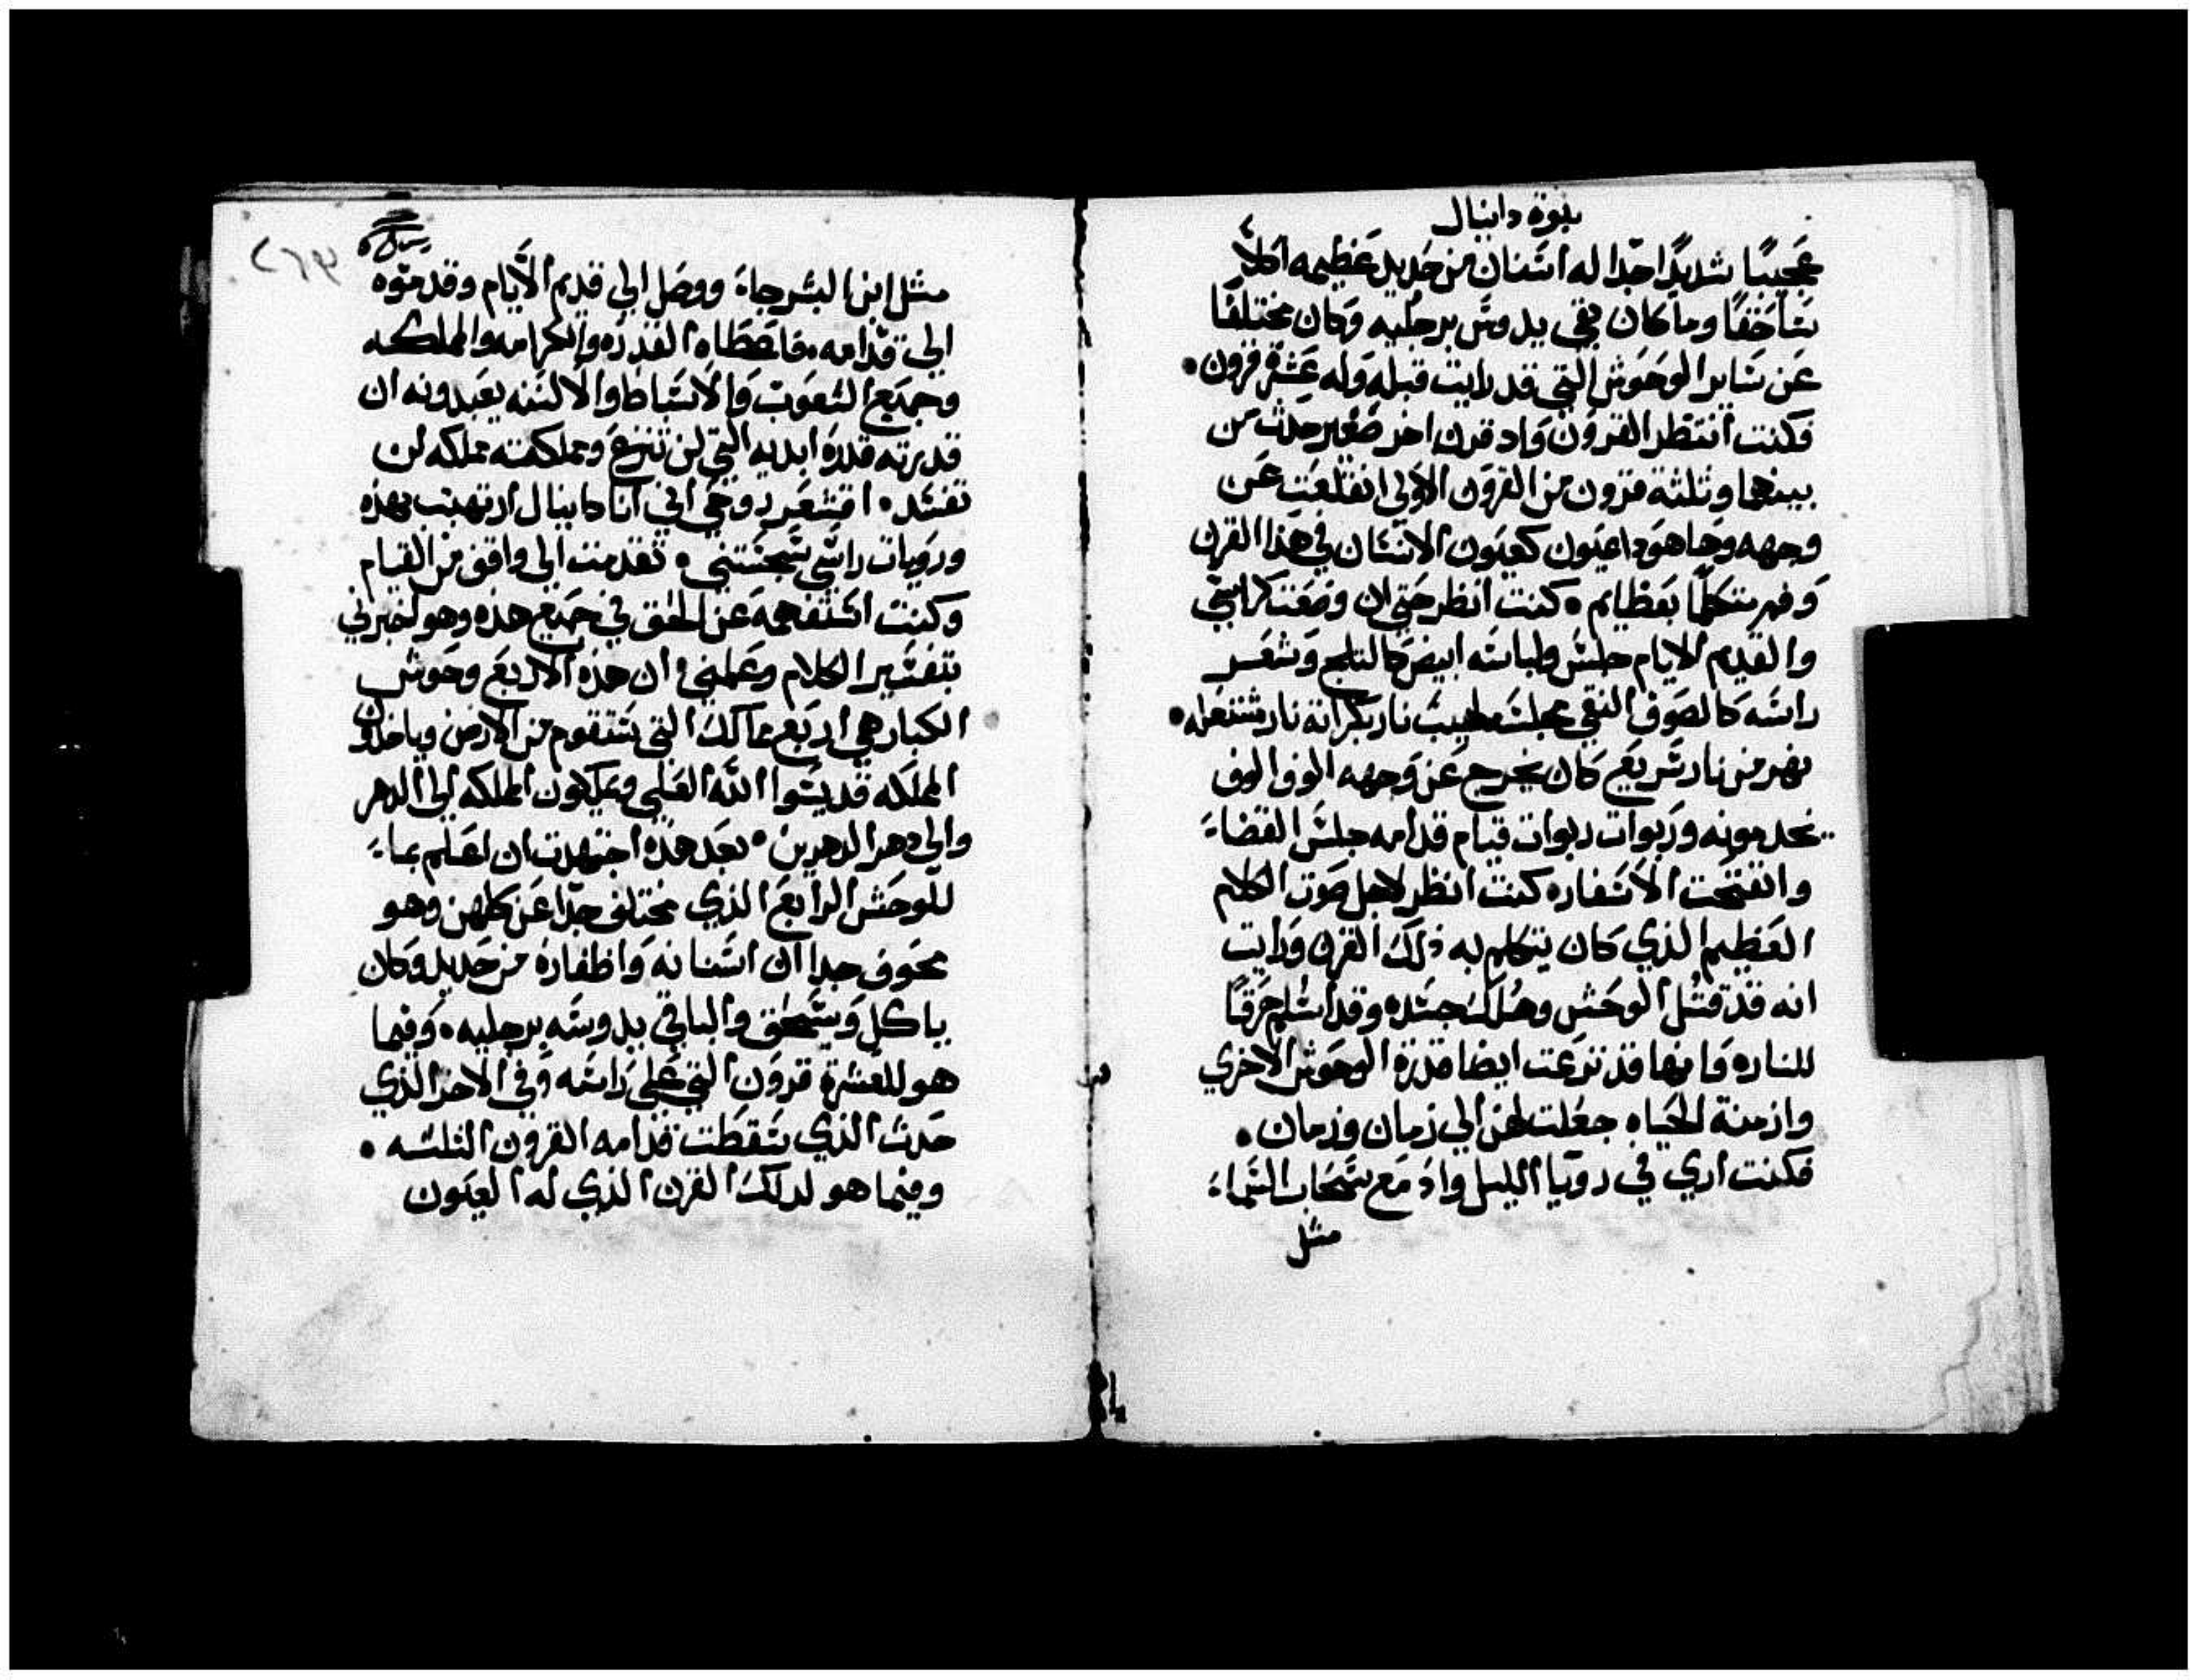 نبوة دانيال
عجيبًا شديدًا جدا له اسنان من حديد عظيمه اكلاً
ساحقًا وما كان بقي يدوس برجليه وكان مختلفًا
عن ساير الوحوش التي قد رايت قبله وله عشرة قرون •
فكنت انتظر القرون واد قرن اخر صغير حدث من
بينهما وثلثة قرون من القرون الاولى انقلعت عن
وجهه وها هودا عيون كعيون الانسان في هدا القرن
وفم متكلمًا بعظايم • كنت انظر حتى ان وضعت كراسي
والقديم الايام جلس ولباسه ابيض كالتلج وشعر
راسه كالصوف النقي مجلسه لهيب نار بكراته نار مشتعله •
نهر من نار سريع كان يخرج عن وجهه الوف الوف
يخدمونه وربوات ربوات قيام قدامه جلس القضاء
وانفتحت الاسفار • كنت انظر لاجل صوت الكلام
العظيم الذي كان يتكلم به ذلك القرن ورايت
انه قد قتل الوحش وهلك جسده وقد اسلم حرقًا
للنار • وانها قد نزعت ايضا قدرة الوحوش الاخري
وازمنة الحياه جعلت لهن الي زمان وزمان •
فكنت اري في رويا الليل واد مع سحاب السماء
مثل
٢٦٣
مثل ابن البشر جاء ووصل الي قديم الايام وقدموه
الي قدامه • فاعطاه القدره والكرامه والمملكه
وجميع الشعوب والاسباط والالسنه يعبدونه ان
قدرته قدرة ابديه التي لن تنزع ومملكته مملكه لن
تفسد • اقشعر روحي اني انا دانيال ارتهبت بهذه
ورويات راسي سجستني • تقدمت الي واقف من القيام
وكنت استفهمه عن الحق في جميع هذه وهو اخبرني
بتفسير الكلام وعلمني • ان هذه الاربع وحوش
الكبار هي اربع ممالك التي ستقوم من الارض وياخذون
المملكه قديسوا الله العلي ويملكون المملكه الي الدهر
والي دهر الدهرين • بعد هذه اجتهدت ان اعلم بماء
للوحش الرابع الذي مختلف جدًا عن كلهن وهو
مخوف جدا ان اسنانه واظفاره من حديد وكان
ياكل ويسحق والباقي يدوسه برجليه • وفيما
هو للعشرة قرون التي علي راسه وفي الاخر الذي
حدث الذي سقطت قدامه القرون الثلثه •
وفيما هو لدلك القرن الذي له العيون